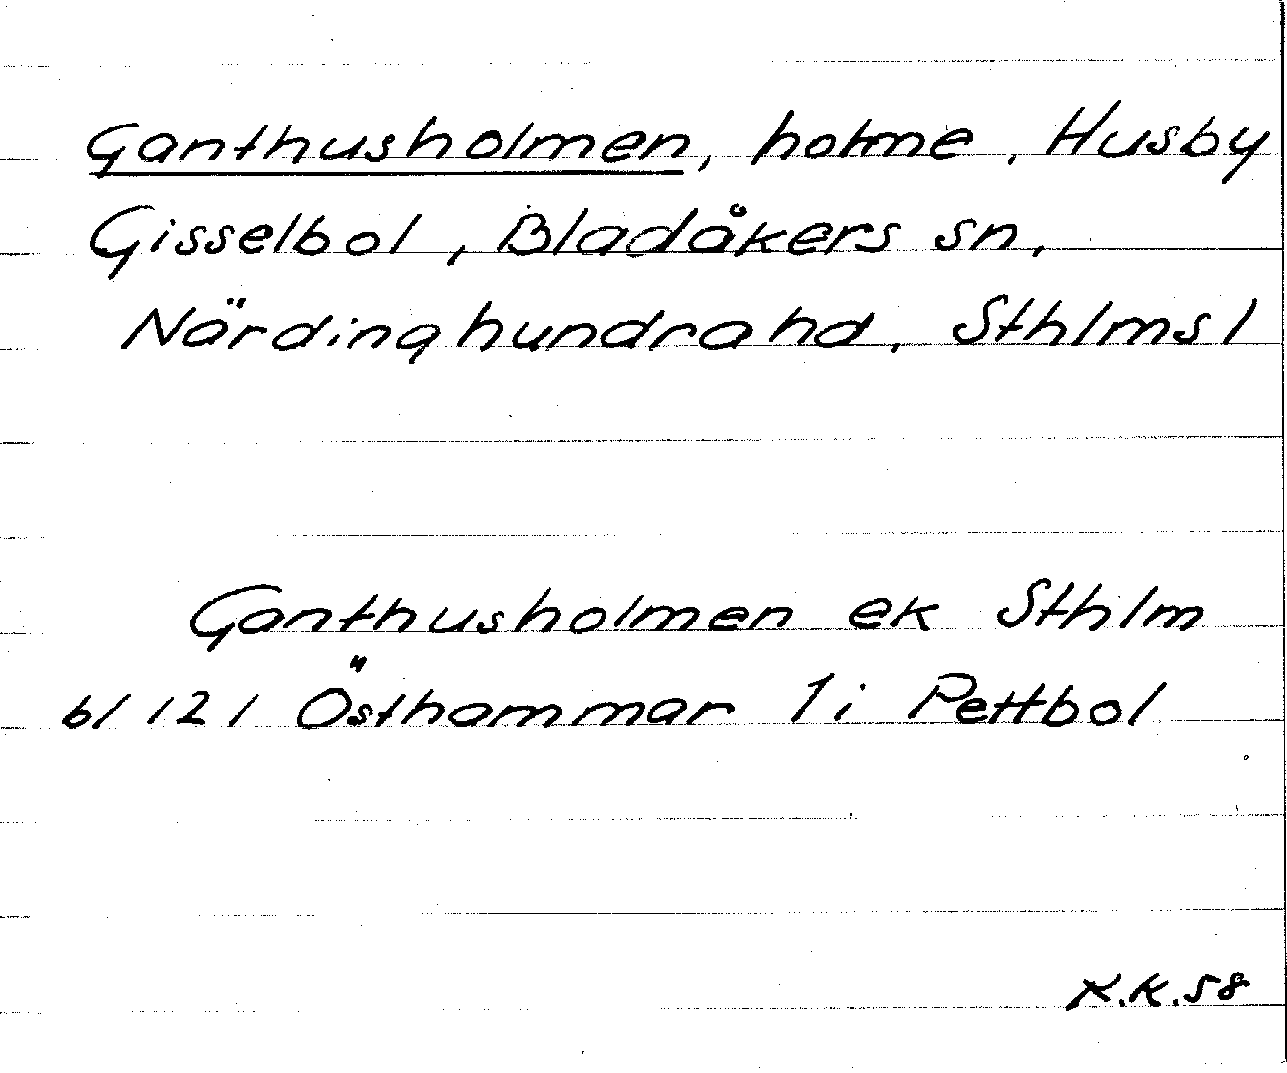 Ganthusholmen, holme, Husby
Gisselbol, Bladåkers sn,
Närdinghundra hd, Sthlms l
Ganthusholmen ek Sthlm
bl 121 Östhammar 1i Pettbol
K.K.58